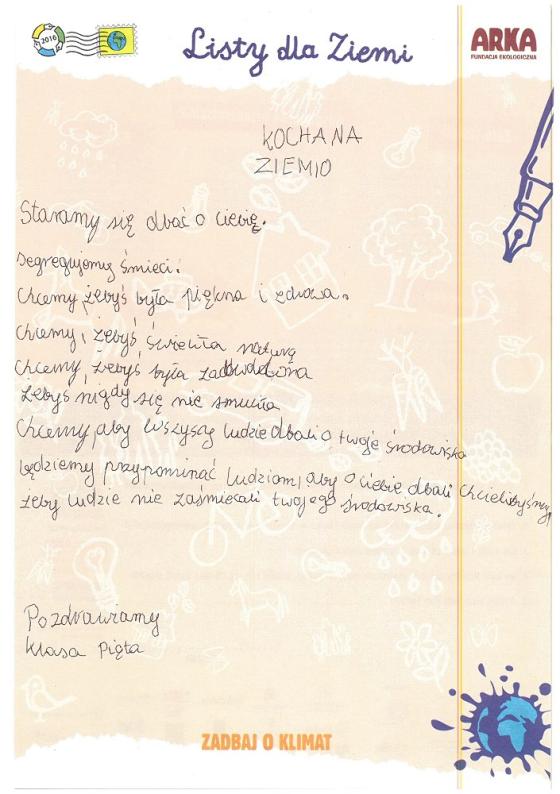 2016
Listy dla Ziemi
ARKA
FUNDACJA EKOLOGICZNA
KOCHANA
ZIEMIO
Staramy się dbać o ciebię.
Segregujomy śmieci.
Chcemy, żebyś była piękna i zdrowa.
Chcemy, żebyś świeciła naturą
Chcemy, żebyś była zadowdolona
Żebyś nigdy się nie smuciła
Chcemy, aby wszyscy ludzie dbali o twoje środowisko
będziemy przypominać ludziom, aby o ciebie dbali Chcielibyśmy,
żeby ludzie nie zaśmiecali twojego środowiska.
Pozdrawiamy
klasa piąta
ZADBAJ O KLIMAT